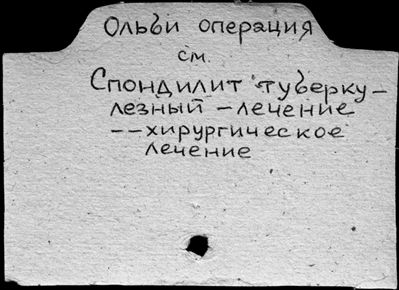 Ольби операция
см.
Спондилит туберку-
лезный - лечение
-- хирургическое
лечение